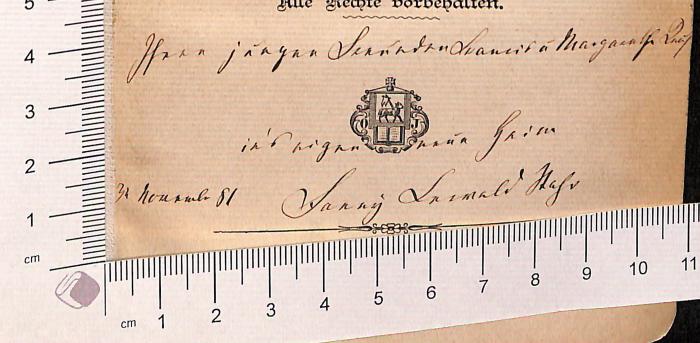 Alle Rechte vorbehalten.
Ihren jungen Freunden Francis u Margarethe
in's eigen neue Heim
3t November 81 Fanny Lewald Stahr
5
4
3
2
1
cm
cm 1 2 3 4 5 6 7 8 9 10 11